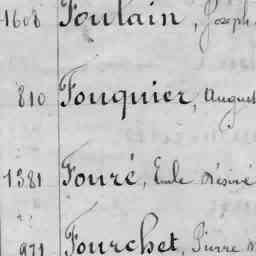 1608 Foulain, Joseph
810 Fouquier, August
1381 Fouré, Emile Désiré
971 Fourchet, Pierre